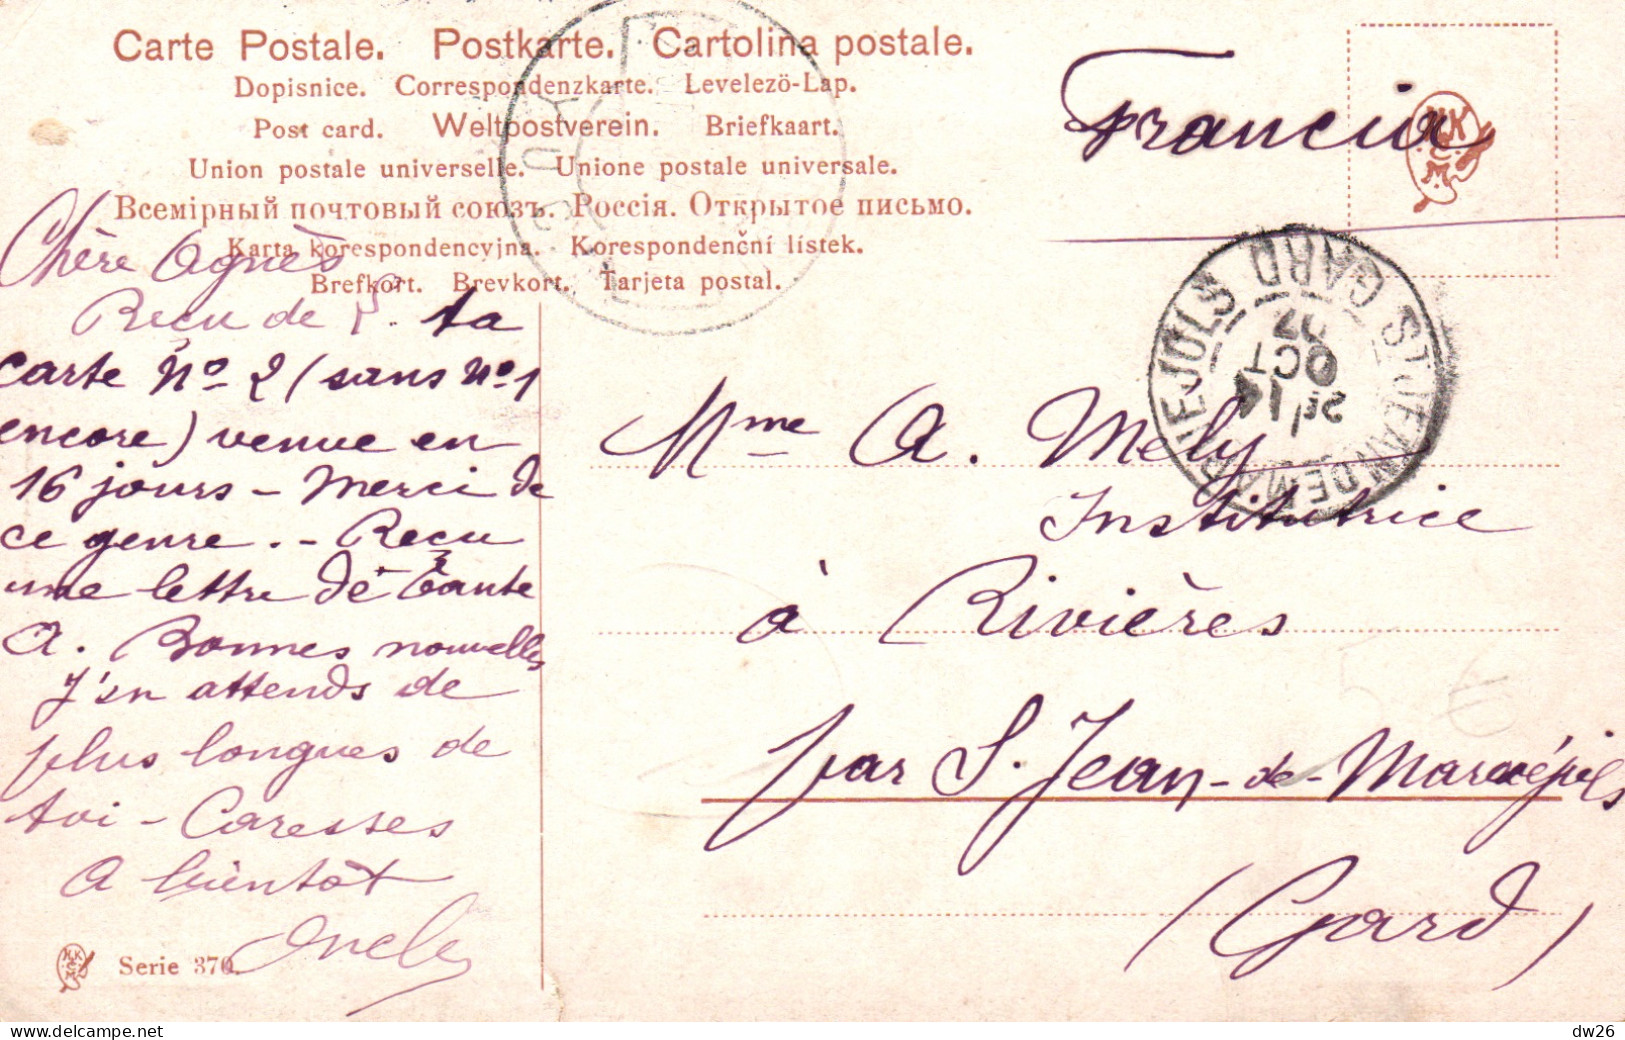 Carte Postale. Postkarte. Cartolina postale.
Dopisnice. Correspondenzkarte. Levelezö-Lap.
Post card. Weltpostverein. Briefkaart.
Union postale universelle. Unione postale universale.
Всемірный почтовый союзъ. Россія. Открытое письмо.
Karta korespondencyjna. Korespondenční lístek.
Brefkort. Brevkort. Tarjeta postal.
Francia
Chère Agnès
Reçu de ta
carte Nº 2 (sans nº 1
encore) venue en
16 jours - Merci de
ce genre. - Reçu
une lettre de tante
A. Bonnes nouvelles
J'en attends de
plus longues de
toi - Caresses
A bientôt
Serie 370.
Mme A. Mely
Institutrice
à Rivières
par S. Jean-de-Maruéjols
(Gard)
ST JEAN DE MARUEJOLS GARD
14
OCT
07
delcampe.net
dw26